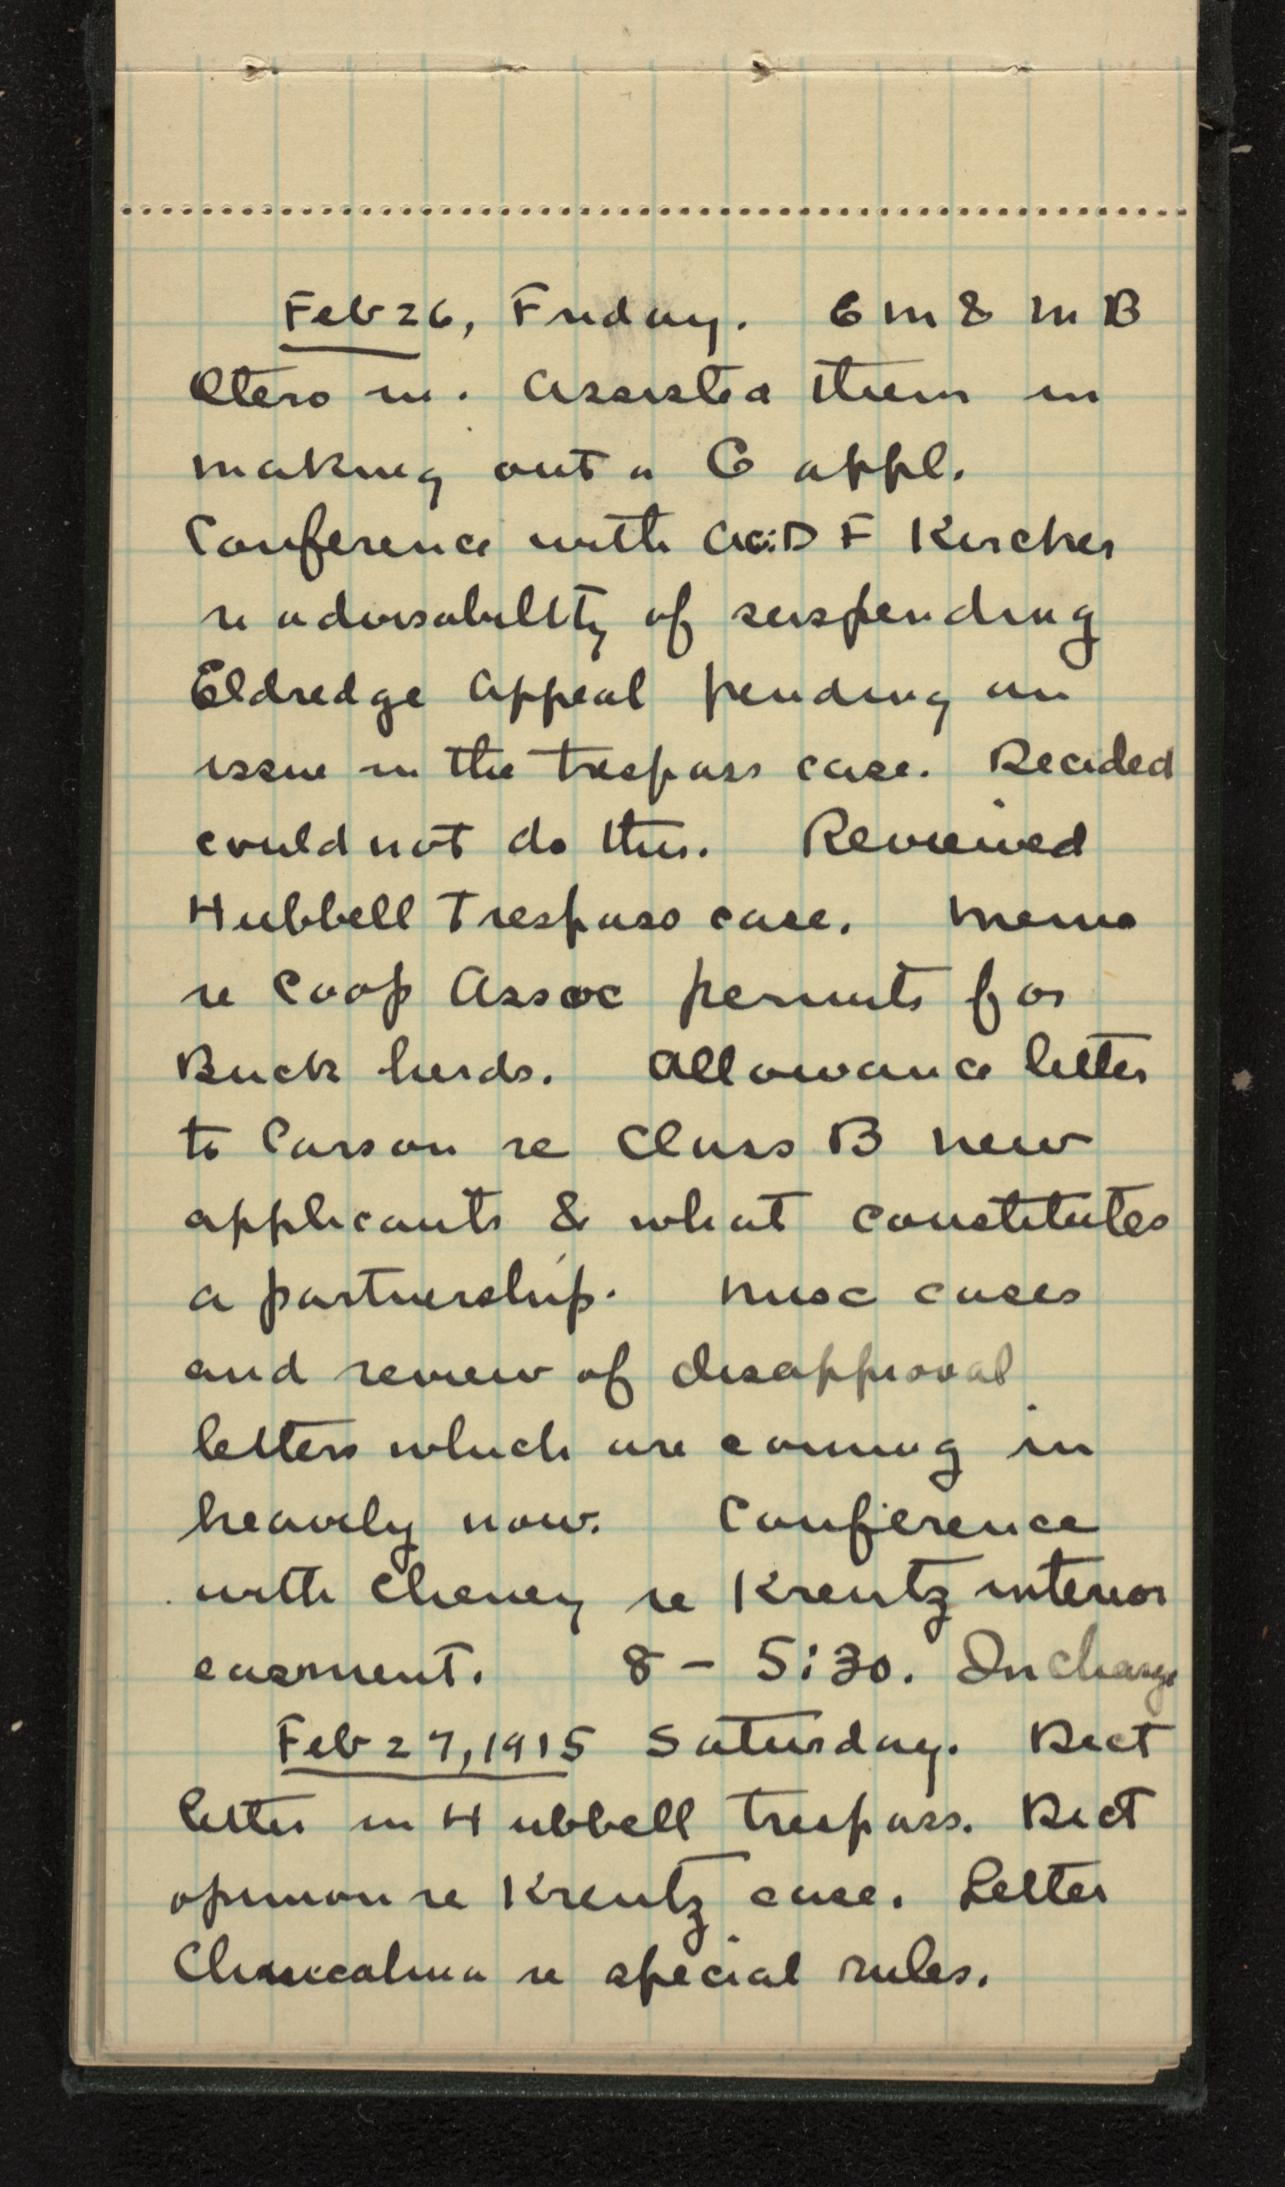 Feb 26, Friday. E M & M B
Otero in. Assisted them in
making out a G appl.
Conference with ADF Kircher
re advisability of suspending
Eldredge Appeal pending an
issue in the trespass case. Decided
could not do this. Reviewed
Hubbell Trespass case. Memo
re Coop Assoc permits for
Buck herds. Allowance letter
to Carson re Class B new
applicants & what constitutes
a partnership. Misc cases
and review of disapproval
letters which are coming in
heavily now. Conference
with Cheney re Krentz interior
easment. 8 - 5:30. In charge
Feb 27, 1915 Saturday. Dict
letter in Hubbell trespass. Dict
opinion re Krentz case. Letter
re special rules.